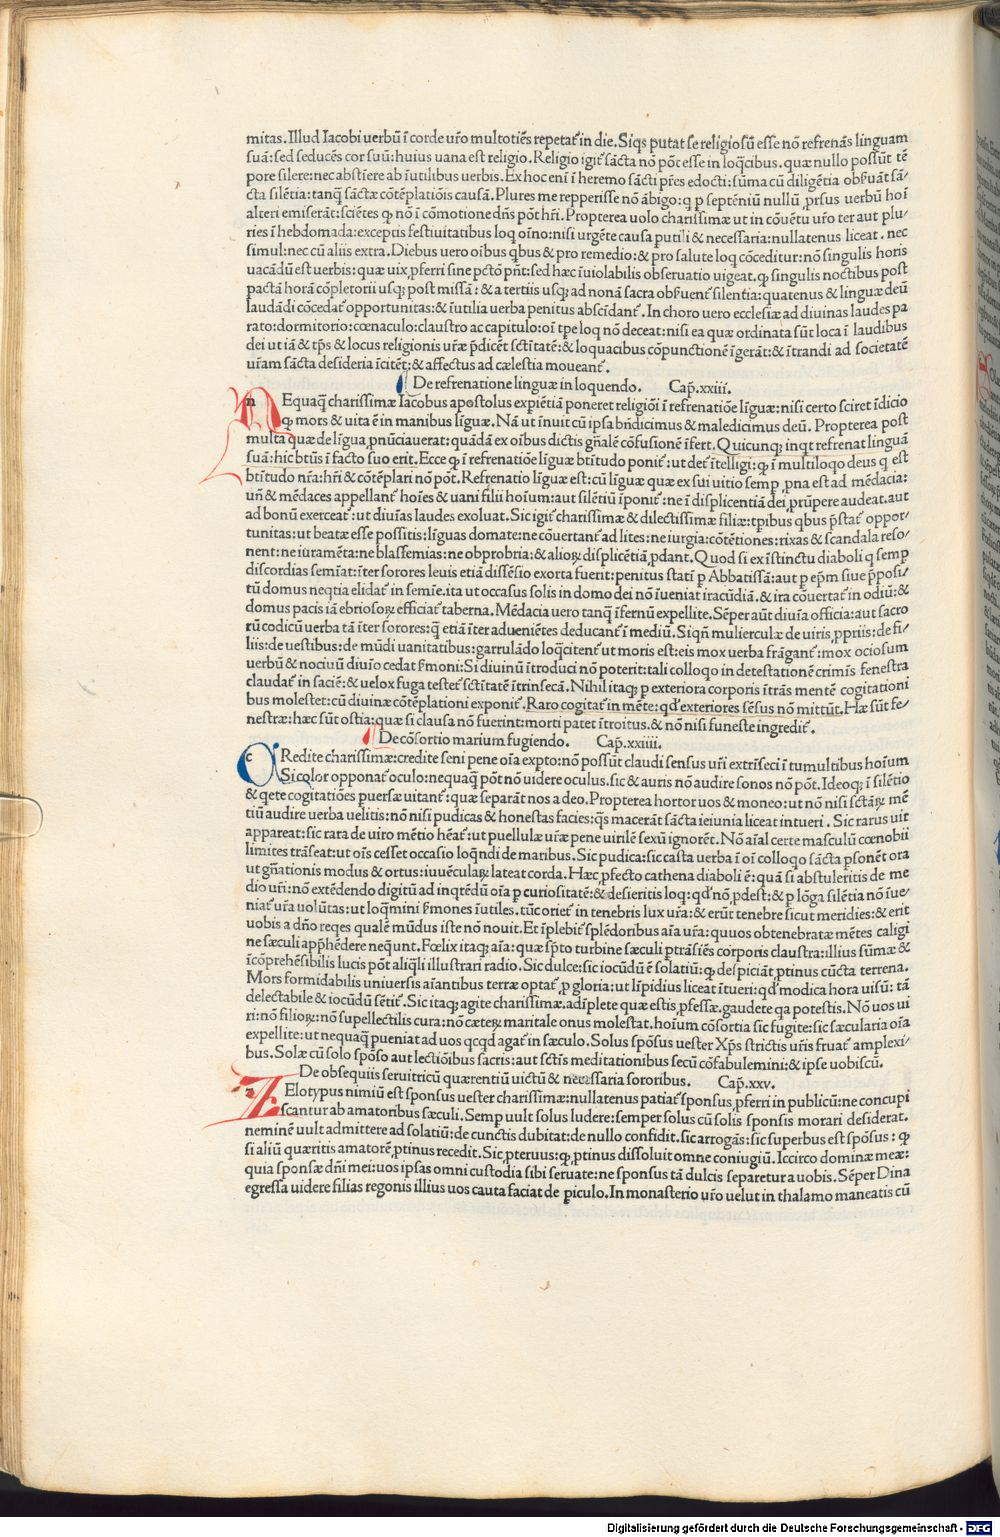 mitas. Illud Iacobi uerbū ī corde ur̄o multotiēs repetat᷑ in die. Siqs putat se religiosū esse nō refrenās linguam
suā: sed seducēs cor suū: huius uana est religio. Religio igit᷑ sācta nō pōt esse in loq̄cibus. quæ nullo possūt tē
pore silere: nec abstīere ab īutilibus uerbis. Ex hoc enī ī heremo sācti pr̄es edocti: sūma cū diligētia obs̄uāt sā-
cta silētia: tanq̄ sāctæ cōtēplatiōis causā. Plures me repperisse nō ābigo: q̄ p septēniū nullū ꝓrsus uerbū hoī
alteri emiserāt: sciētes ꝙ nō ī cōmotione dn̄s pōt hr̄i. Propterea uolo charissimæ ut in cōuētu ur̄o ter aut plu/
ries ī hebdomada: exceptis festiuitatibus loq oīno: nisi urgēte causa putili & necessaria: nullatenus liceat. nec
simul: nec cū aliis extra. Diebus uero oībus qbus & pro remedio: & pro salute loq cōceditur: nō singulis horis
uacādū est uerbis: quæ uix ꝓferri sine pctō pn̄t: sed hæc īuiolabilis obseruatio uigeat. ꝙ singulis noctibus post
pactā horā cōpletorii usq; post missā: & a tertiis usq; ad nonā sacra obs̄uent᷑ silentia: quatenus & linguæ deū
laudādi cōcedat᷑ opportunitas: & īutilia uerba penitus abscīdant᷑. In choro uero ecclesiæ ad diuinas laudes pa
rato: dormitorio: cœnaculo: claustro ac capitulo: oī tp̄e loq nō deceat: nisi ea quæ ordinata sūt loca ī laudibus
dei ut iā & tp̄s & locus religionis ur̄æ p̄dicēt sctītatē: & loquacibus cōpunctionē īgerāt: & ītrandi ad societatē
ur̄am sācta desideria īcitēt: & affectus ad cælestia moueant᷑.
De refrenatione linguæ in loquendo. Cap̄. xxiii.
nEquaq̄ charissimæ Iacobus apostolus expiētiā poneret religiōī ī refrenatiōe līguæ: nisi certo sciret īdicio
ꝙ mors & uita ē in manibus līguæ. Nā ut īnuit cū ipsa bn̄dicimus & maledicimus deū. Propterea post
multa quæ de līgua ꝓnūciauerat: quādā ex oībus dictis gn̄ale cōfusionē īfert. Quicunq; inqt refrenat linguā
suā: hic btūs ī facto suo erit. Ecce ꝙ ī refrenatiōe līguæ btītudo ponit᷑: ut det᷑ ītelligi: ꝙ ī multiloqo deus q est
btītudo nr̄a: hr̄i & cōtēplari nō pōt. Refrenatio līguæ est: cū līguæ quæ ex sui uitio semp ꝓna est ad mēdacia:
un̄ & mēdaces appellant᷑ hoīes & uani filii hoīum: aut silētiū īponit᷑: ne ī displicentiā dei ꝓrūpere audeat. aut
ad bonū exerceat᷑: ut diuīas laudes exoluat. Sic igit᷑ charissimæ & dilectissimæ filiæ: tpibus qbus p̄stat᷑ oppor/
tunitas: ut beatæ esse possitis: līguas domate: ne cōuertant᷑ ad lites: ne iurgia: cōtētiones: rixas & scandala reso/
nent: ne iuramēta: ne blasfemias: ne obprobria: & alioꝝ displicētiā ꝓdant. Quod si ex īstinctu diaboli q semp
discordias semīat: īter sorores leuis etiā dissēsio exorta fuerit: penitus statī p Abbatissā: aut p ep̄m siue p̄posi/
tū domus neqtia elidat᷑ in semīe. ita ut occasus solis in domo dei nō īueniat iracūdiā: & ira cōuertat᷑ in odiū: &
domus pacis iā ebriosoꝝ efficiat᷑ taberna. Mēdacia uero tanq̄ īfernū expellite. Sēper aūt diuīa officia: aut sacro
rū codicū uerba tā īter sorores: q̄ etiā īter adueniētes deducant᷑ ī mediū. Siqn̄ mulierculæ de uiris ꝓpriis: de fi/
liis: de uestibus: de mūdi uanitatibus: garrulādo loq̄citent᷑ ut moris est: eis mox uerba frāgant᷑: mox ociosum
uerbū & nociuū diuīo cedat s̄moni: Si diuinū ītroduci nō poterit: tali colloqo in detestationē crimīs fenestra
claudat᷑ in faciē: & uelox fuga testet᷑ sctītatē ītrinsecā. Nihil itaq; p exteriora corporis ītrās mentē cogitationi
bus molestet: cū diuinæ cōtēplationi exponit᷑. Raro cogitat᷑ in mēte: qd᷑ exteriores sēsus nō mittūt. Hæ sūt fe/
nestræ: hæc sūt ostia: quæ si clausa nō fuerint: morti patet ītroitus. & nō nisi funeste ingredit᷑.
De cōsortio marium fugiendo. Cap̄. xxiiii.
cRedite charissimæ: credite seni pene oīa expto: nō possūt claudi sensus ur̄i extrīseci ī tumultibus hoīum
Si color opponat᷑ oculo: nequaq̄ pōt nō uidere oculus. sic & auris nō audire sonos nō pōt. Ideoq; ī silētio
& qete cogitatiōes puersæ uitant᷑: quæ separāt nos a deo. Propterea hortor uos & moneo: ut nō nisi sctāꝝ mē
tiū audire uerba uelitis: nō nisi pudicas & honestas facies: qs macerāt sācta ieiunia liceat intueri. Sic rarus uir
appareat: sic rara de uiro mētio hēat᷑: ut puellulæ ur̄æ pene uirilē sexū ignorēt. Nō aīal certe masculū cœnobii
limites trāseat: ut oīs cesset occasio loq̄ndi de maribus. Sic pudica: sic casta uerba ī oī colloqo sācta psonēt ora
ut gn̄ationis modus & ortus: iuuēculaꝝ lateat corda. Hæc ꝓfecto cathena diaboli ē: quā si abstuleritis de me
dio ur̄i: nō extēdendo digitū ad inqrēdū oīa p curiositatē: & desieritis loq: qd᷑ nō ꝓdest: & p lōga silētia nō īue/
niat᷑ ur̄a uolūtas: ut loq̄mini s̄mones īutiles. tūc oriet᷑ in tenebris lux ur̄a: & erūt tenebre sicut meridies: & erit
uobis a dn̄o reqes qualē mūdus iste nō nouit. Et īplebit᷑ splēdoribus aīa ur̄a: quuos obtenebratæ mētes caligi
ne sæculi app̄hēdere neqūnt. Fœlix itaq; aīa: quæ sp̄to turbine sæculi ptrāsiēs corporis claustra: illius sūmæ &
īcōprehēsibilis lucis pōt aliq̄li illustrari radio. Sic dulce: sic iocūdū ē solatiū: ꝙ despiciāt᷑ ptinus cūcta terrena.
Mors formidabilis uniuersis aīantibus terræ optat᷑ ꝓ gloria: ut līpidius liceat ītueri: qd᷑ modica hora uisū: tā
delectabile & iocūdū sētit᷑. Sic itaq; agite charissimæ. adīplete quæ estis ꝓfessæ. gaudete qa potestis. Nō uos ui
ri: nō filioꝝ: nō supellectilis cura: nō cæteꝝ maritale onus molestat. hoīum cōsortia sic fugite: sic sæcularia oīa
expellite: ut nequaq̄ pueniat ad uos qcqd agat᷑ in sæculo. Solus spōsus uester Xp̄s strictis ur̄is fruat᷑ amplexi/
bus. Solæ cū solo spōso aut lectiōibus sacris: aut sctīs meditationibus secū cōfabulemini: & ipse uobiscū.
De obsequiis seruitricū quærentiū uictū & necessaria sororibus. Cap̄. xxv.
zElotypus nimiū est sponsus uester charissimæ: nullatenus patiat᷑ sponsus ꝓferri in publicū: ne concupi
scantur ab amatoribus sæculi. Semp uult solus ludere: semper solus cū solis sponsis morari desiderat.
neminē uult admittere ad solatiū: de cunctis dubitat: de nullo confidit. sic arrogās: sic superbus est spōsus: ꝙ
si aliū quæritis amatorē ꝓtinus recedit. Sic ꝓteruus: ꝙ ꝓtinus dissoluit omne coniugiū. Iccirco dominæ meæ:
quia sponsæ dn̄i mei: uos ipsas omni custodia sibi seruate: ne sponsus tā dulcis separetur a uobis. Sēper Dina
egressa uidere filias regonis illius uos cauta faciat de piculo. In monasterio ur̄o uelut in thalamo maneatis cū
Digitalisierung gefördert durch die Deutsche Forschungsgemeinschaft - DFG